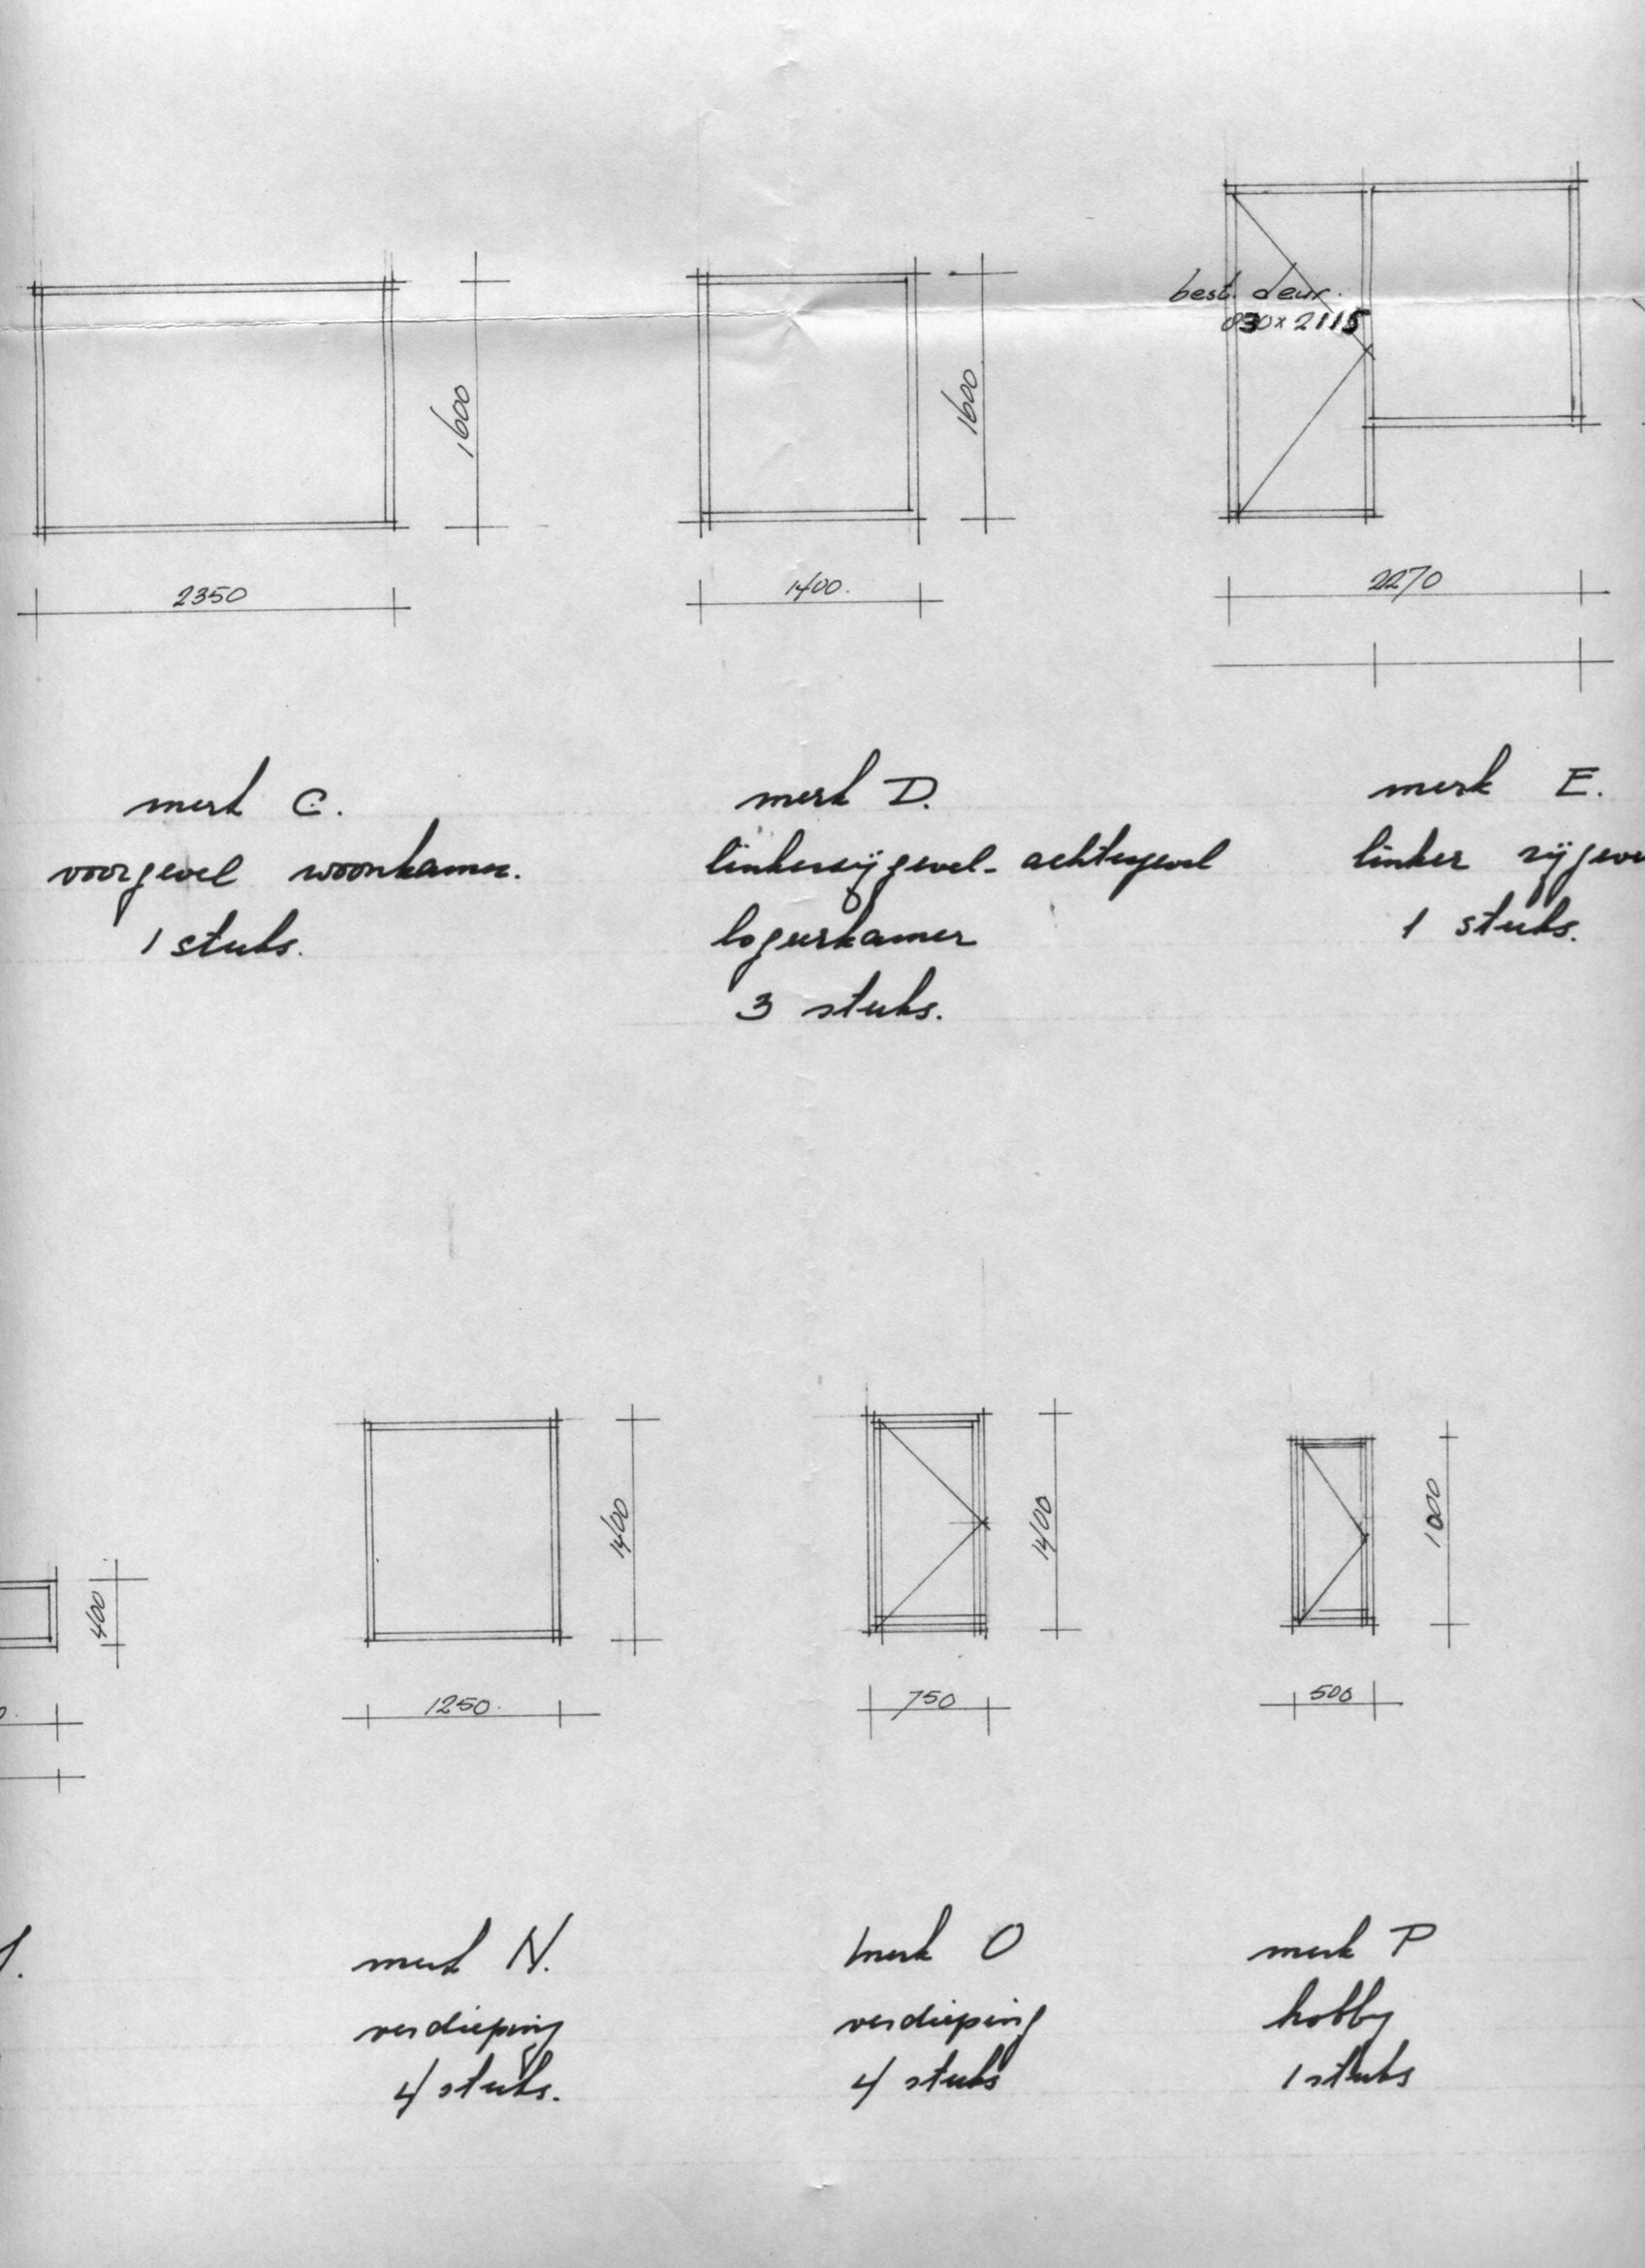 best. deur.
830 x 2115
1600
1600
2350
1400.
2270
merk C.
voorgevel woonkamer.
1 stuks.
merk D.
linkerzijgevel - achtergevel
logeerkamer
3 stuks.
merk E.
linker zijgeve
1 stuks.
400
1400
1400
1000
1250.
750
500
merk N.
verdieping
4 stuks.
merk O
verdieping
4 stuks
merk P
hobby
1 stuks